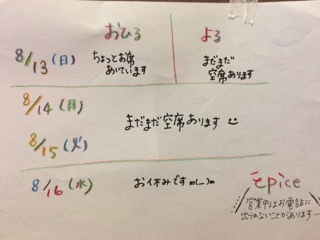 おひる
よる
8/13(日)
ちょっとお席
あいています
まだまだ
空席あります
8/14(月)
8/15(火)
まだまだ空席あります
8/16(水)
お休みです m(__)m
Epice
営業中はお電話に
出られないことがあります...